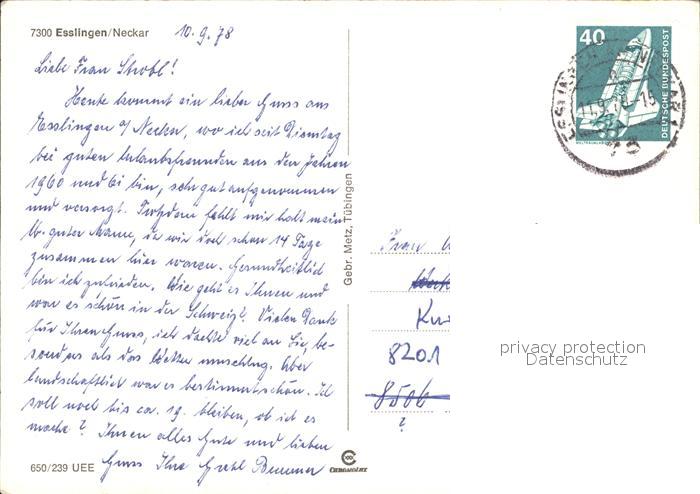 7300 Esslingen/Neckar
10.9.78
Liebe Frau Strobl!
Heute kommt ein lieber Gruss aus
Esslingen a/Neckar, wo ich seit Dienstag
bei guten Urlaubsfreunden aus den Jahren
1960 und 61 bin, sehr gut aufgenommen
und versorgt. Trotzdem fehlt mir halt mein
lb. guter Mann, da wir doch schon 14 Tage
zusammen hier waren. Gesundheitlich
bin ich zufrieden. Wie geht es Ihnen und
war es schön in der Schweiz? Vielen Dank
für Ihren Gruss, ich dachte viel an Sie, be-
sonders als das Wetter umschlug. Aber
landschaftlich war es bestimmt schön. Ich
soll noch bis ca. 19. bleiben, ob ich es
mache? Ihnen alles Gute und lieben
Gruss Ihre Gretl Brunner
650/239 UEE
Gebr. Metz, Tübingen
CHROMOLUX
40
DEUTSCHE BUNDESPOST
11.9.78-15
Frau
Ku
8201
8506
?
privacy protection
Datenschutz